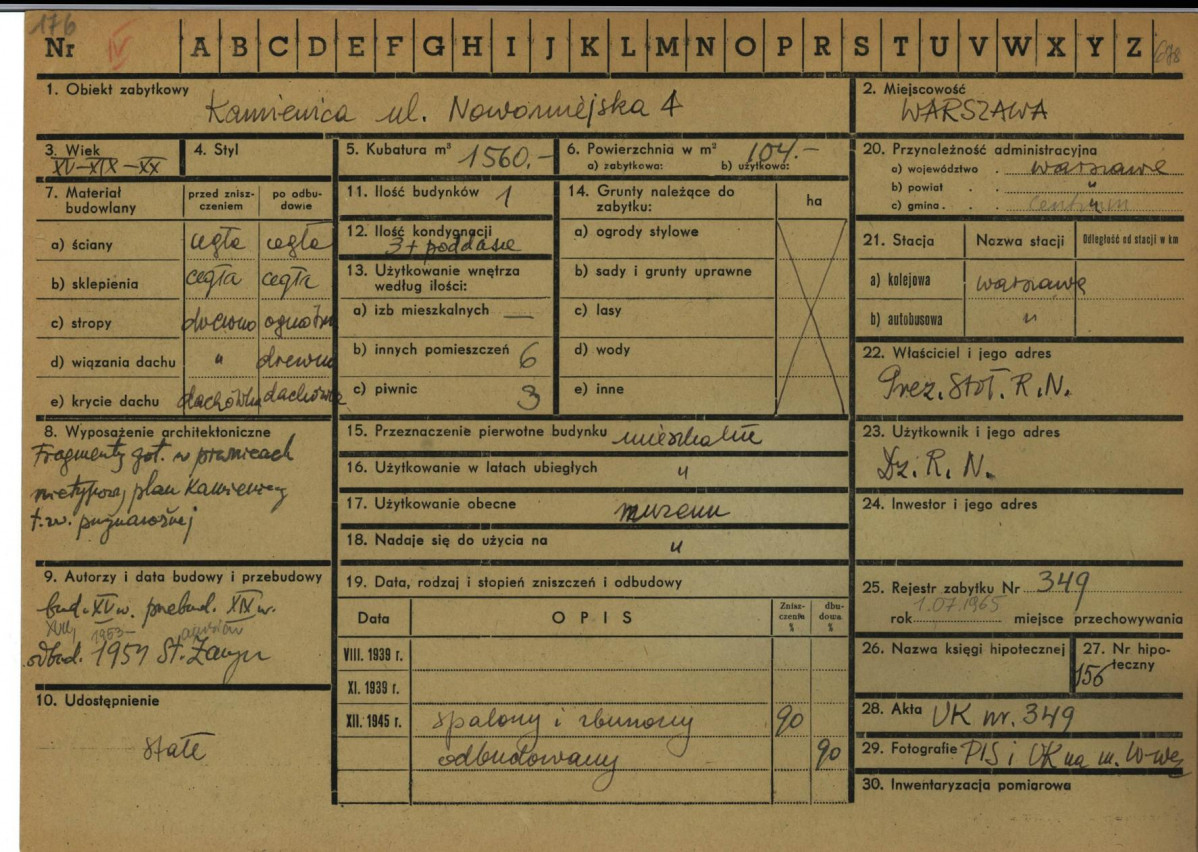 176
Nr IV A B C D E F G H I J K L M N O P R S T U V W X Y Z
1. Obiekt zabytkowy
Kamienica ul. Nowomiejska 4
2. Miejscowość
WARSZAWA
3. Wiek
XV-XIX-XX
4. Styl
5. Kubatura m³ 1560.-
6. Powierzchnia w m² 104.-
a) zabytkowa: b) użytkowa:
20. Przynależność administracyjna
a) województwo . warszawa
b) powiat . . "
c) gmina . . Centrum
7. Materiał budowlany
przed zniszczeniem
po odbudowie
a) ściany cegła cegła
b) sklepienia cegła cegła
c) stropy drewno
d) wiązania dachu " drewno
e) krycie dachu dachówka dachówka
11. Ilość budynków 1
12. Ilość kondygnacji
3 + poddasze
13. Użytkowanie wnętrza
według ilości:
a) izb mieszkalnych —
b) innych pomieszczeń 6
c) piwnic 3
14. Grunty należące do
zabytku:
ha
a) ogrody stylowe
b) sady i grunty uprawne
c) lasy
d) wody
e) inne
21. Stacja Nazwa stacji Odległość od stacji w km
a) kolejowa warszawa
b) autobusowa "
22. Właściciel i jego adres
Prez. Stoł. R.N.
8. Wyposażenie architektoniczne
Fragmenty got. w piwnicach
nietypowy plan kamienicy
t.zw.
15. Przeznaczenie pierwotne budynku mieszkalne
16. Użytkowanie w latach ubiegłych "
17. Użytkowanie obecne muzeum
18. Nadaje się do użycia na "
23. Użytkownik i jego adres
Dz. R. N.
24. Inwestor i jego adres
9. Autorzy i data budowy i przebudowy
bud. XV w. przebud. XIX w.
XVII, 1953-
odbud. 1954 St. Żaryn
10. Udostępnienie
stałe
19. Data, rodzaj i stopień zniszczeń i odbudowy
Data OPIS Zniszczenia % dbudowa %
VIII. 1939 r.
XI. 1939 r.
XII. 1945 r. spalony i zburzony 90
odbudowany 90
25. Rejestr zabytku Nr 349
1.07.1965
rok miejsce przechowywania
26. Nazwa księgi hipotecznej
27. Nr hipoteczny
156
28. Akta UK nr. 349
29. Fotografie PIS i UK na m. W-wę
30. Inwentaryzacja pomiarowa